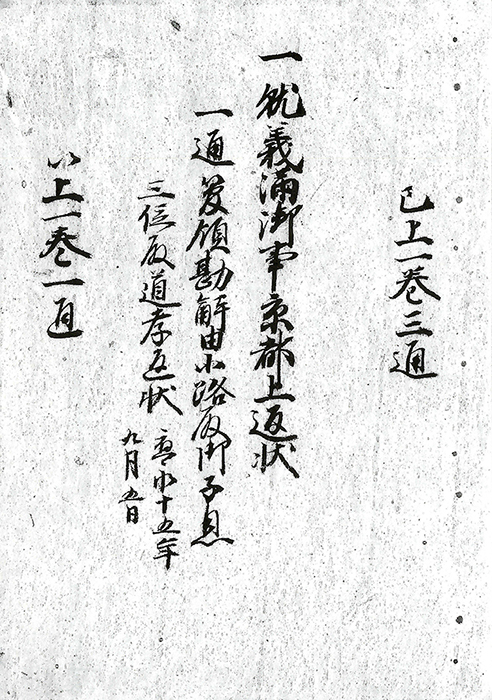 已上一巻三通
一就義満御事京都上返状
一通 管領勘解由小路殿御子息
三位殿道孝返状 応永十五年
九月五日
以上一巻一通